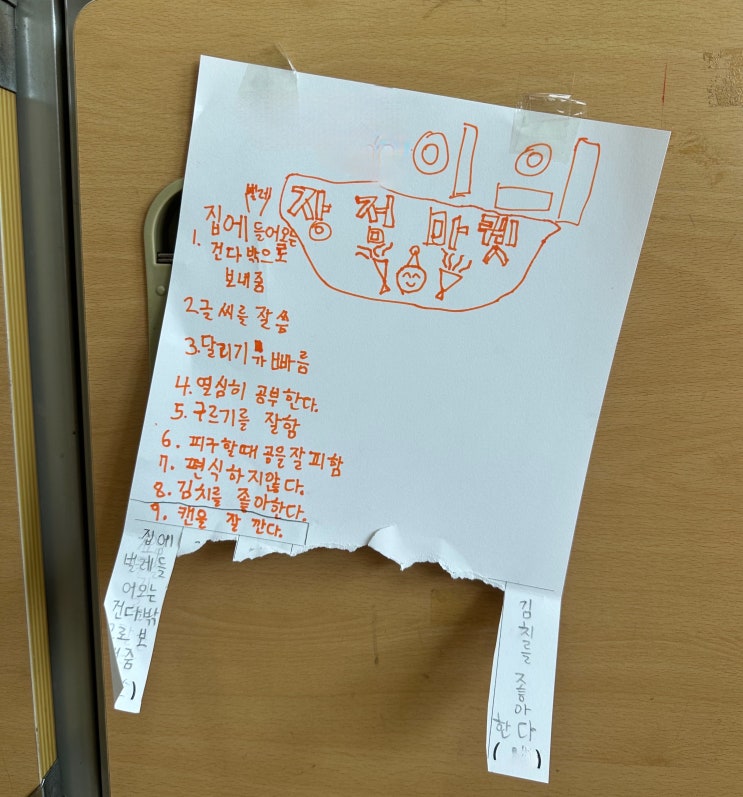 이 의
장점 마켓
벌레
집에 들어오는
1. 건다 밖으로
보내줌
2. 글씨를 잘 씀
3. 달리기가 빠름
4. 열심히 공부한다.
5. 구르기를 잘함
6. 피구할때 공을잘피함
7. 편식하지않다.
8. 김치를 좋아한다.
9. 캔을 잘 깐다.
집에
벌레들
어오는
건다밖
으로 보
내줌
김치를 좋아
한다